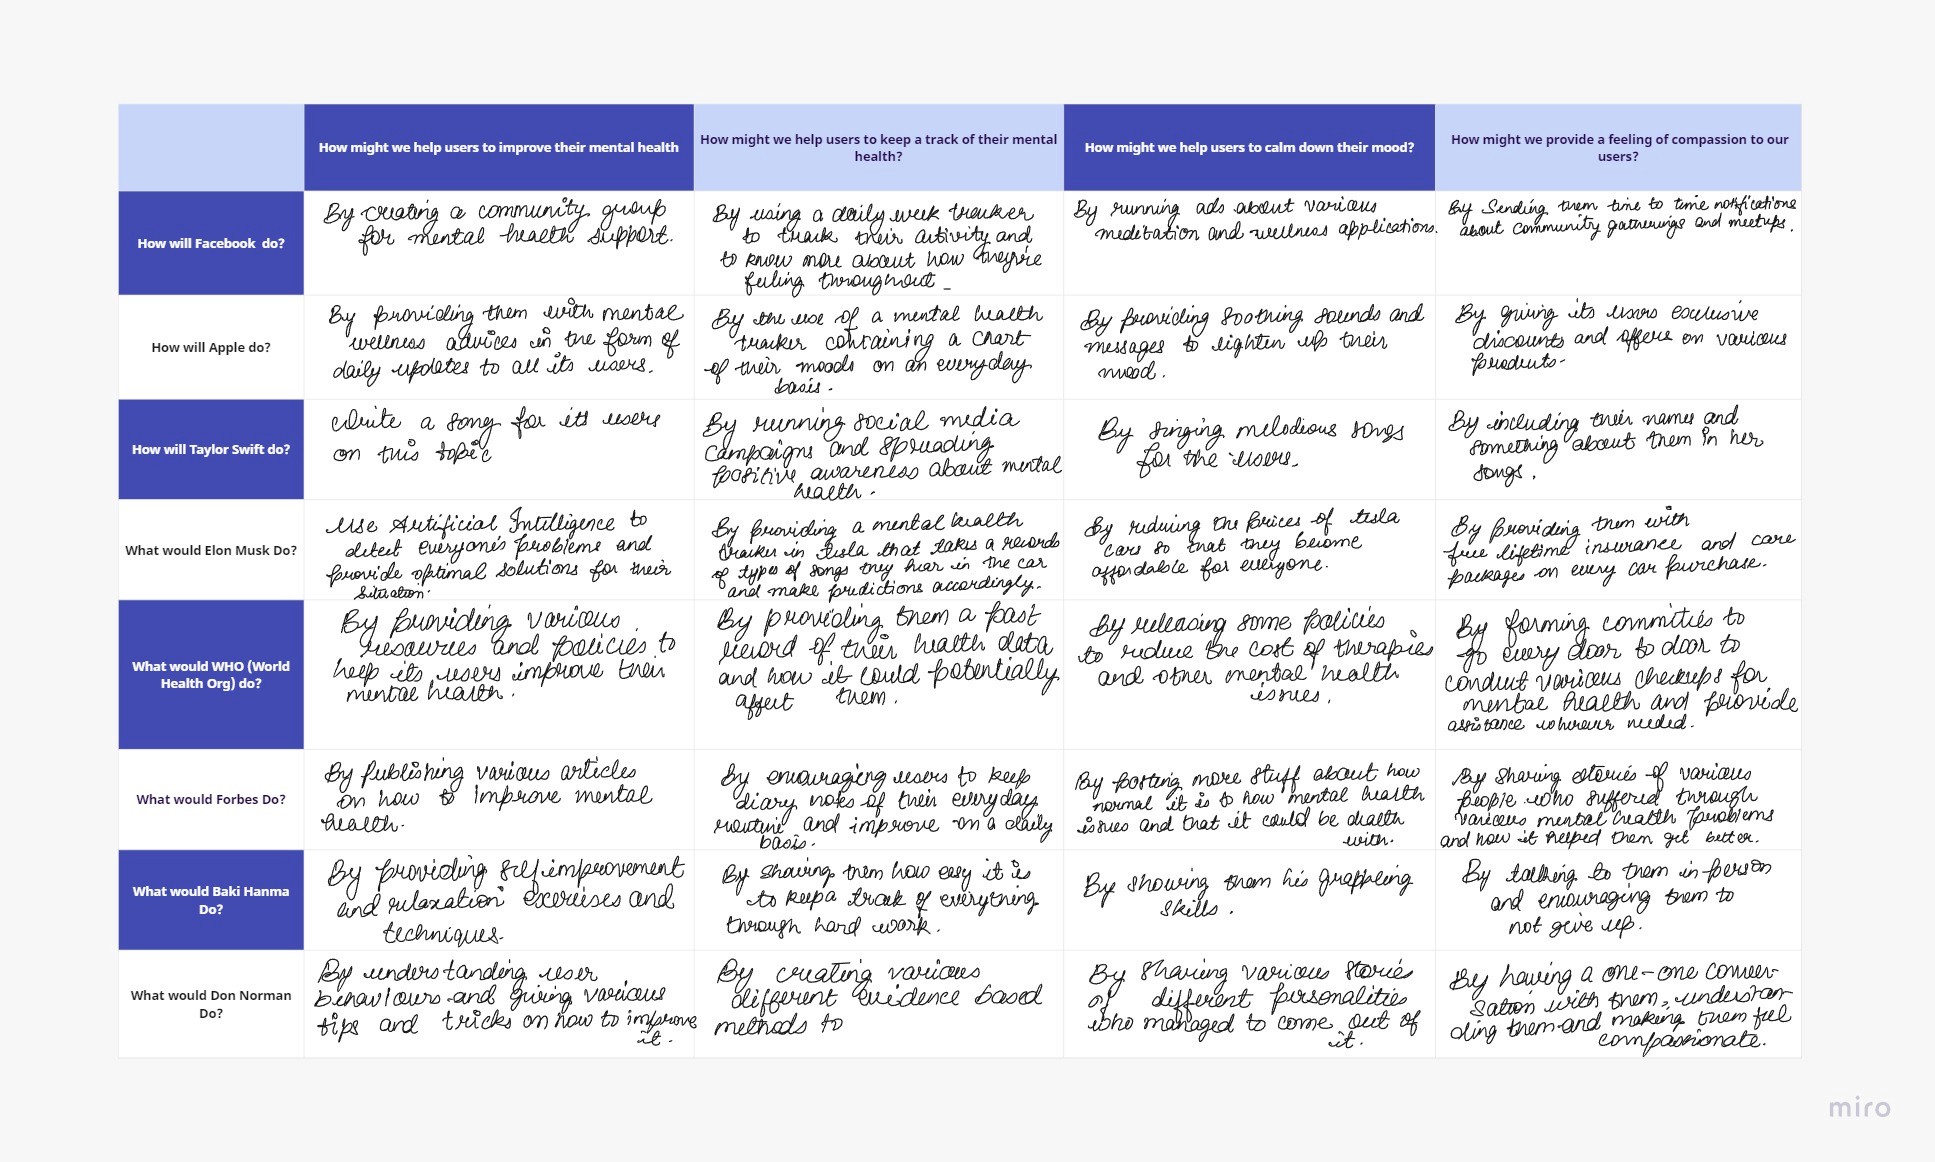 How might we help users to improve their mental health
How might we help users to keep a track of their mental
health?
How might we help users to calm down their mood?
How might we provide a feeling of compassion to our
users?
How will Facebook do?
By creating a community group
for mental health support.
By using a daily week tracker
to track their activity and
to know more about how they're
feeling throughout _
By running ads about various
meditation and wellness applications.
By Sending them time to time notifications
about community gatherings and meetups.
How will Apple do?
By providing them with mental
wellness advices in the form of
daily updates to all its users.
By the use of a mental health
tracker containing a chart
of their moods on an everyday
basis.
By providing soothing sounds and
messages to lighten up their
mood.
By giving its users exclusive
discounts and offers on various
products.
How will Taylor Swift do?
Write a song for its users
on this topic
By running social media
campaigns and spreading
positive awareness about mental
health.
By singing melodious songs
for the users.
By including their names and
something about them in her
songs.
What would Elon Musk Do?
Use Artificial Intelligence to
detect everyone's problems and
provide optimal solutions for their
situation.
By providing a mental health
tracker in Tesla that takes a records
of types of songs they hear in the car
and make predictions accordingly.
By reducing the prices of tesla
cars so that they become
affordable for everyone.
By providing them with
free lifetime insurance and care
packages on every car purchase.
What would WHO (World
Health Org) do?
By providing various
resources and policies to
help its users improve their
mental health.
By providing them a past
record of their health data
and how it could potentially
affect them.
By releasing some policies
to reduce the cost of therapies
and other mental health
issues.
By forming committies to
go every door to door to
conduct various checkups for
mental health and provide
assistance wherever needed.
What would Forbes Do?
By publishing various articles
on how to improve mental
health.
By encouraging users to keep
diary notes of their everyday
routine and improve on a daily
basis.
By posting more stuff about how
normal it is to how mental health
issues and that it could be dealth
with.
By sharing stories of various
people who suffered through
various mental health problems
and how it helped them get better.
What would Baki Hanma
Do?
By providing self improvement
and relaxation exercises and
techniques.
By sharing them how easy it is
to keep a track of everything
through hard work.
By showing them his grappling
skills.
By talking to them in-person
and encouraging them to
not give up.
What would Don Norman
Do?
By understanding user
behaviours and giving various
tips and tricks on how to improve
it.
By creating various
different evidence based
methods to
By sharing various stories
of different personalities
who managed to come out of
it.
By having a one-one conver-
sation with them, understan
ding them and making them feel
compassionate.
miro